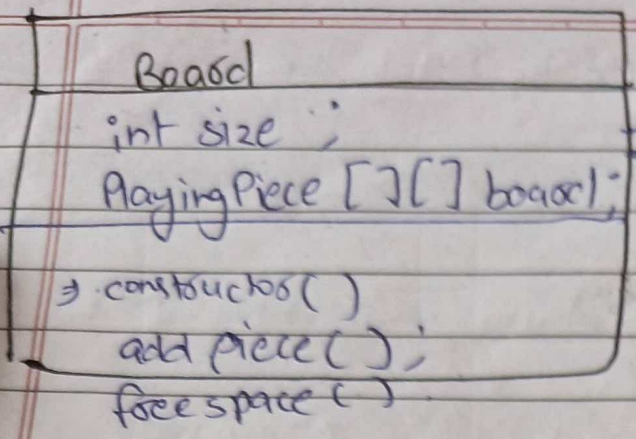 Board
int size ;
Playing Piece [ ] [ ] board;
→ constructor( )
add piece( );
free space( )